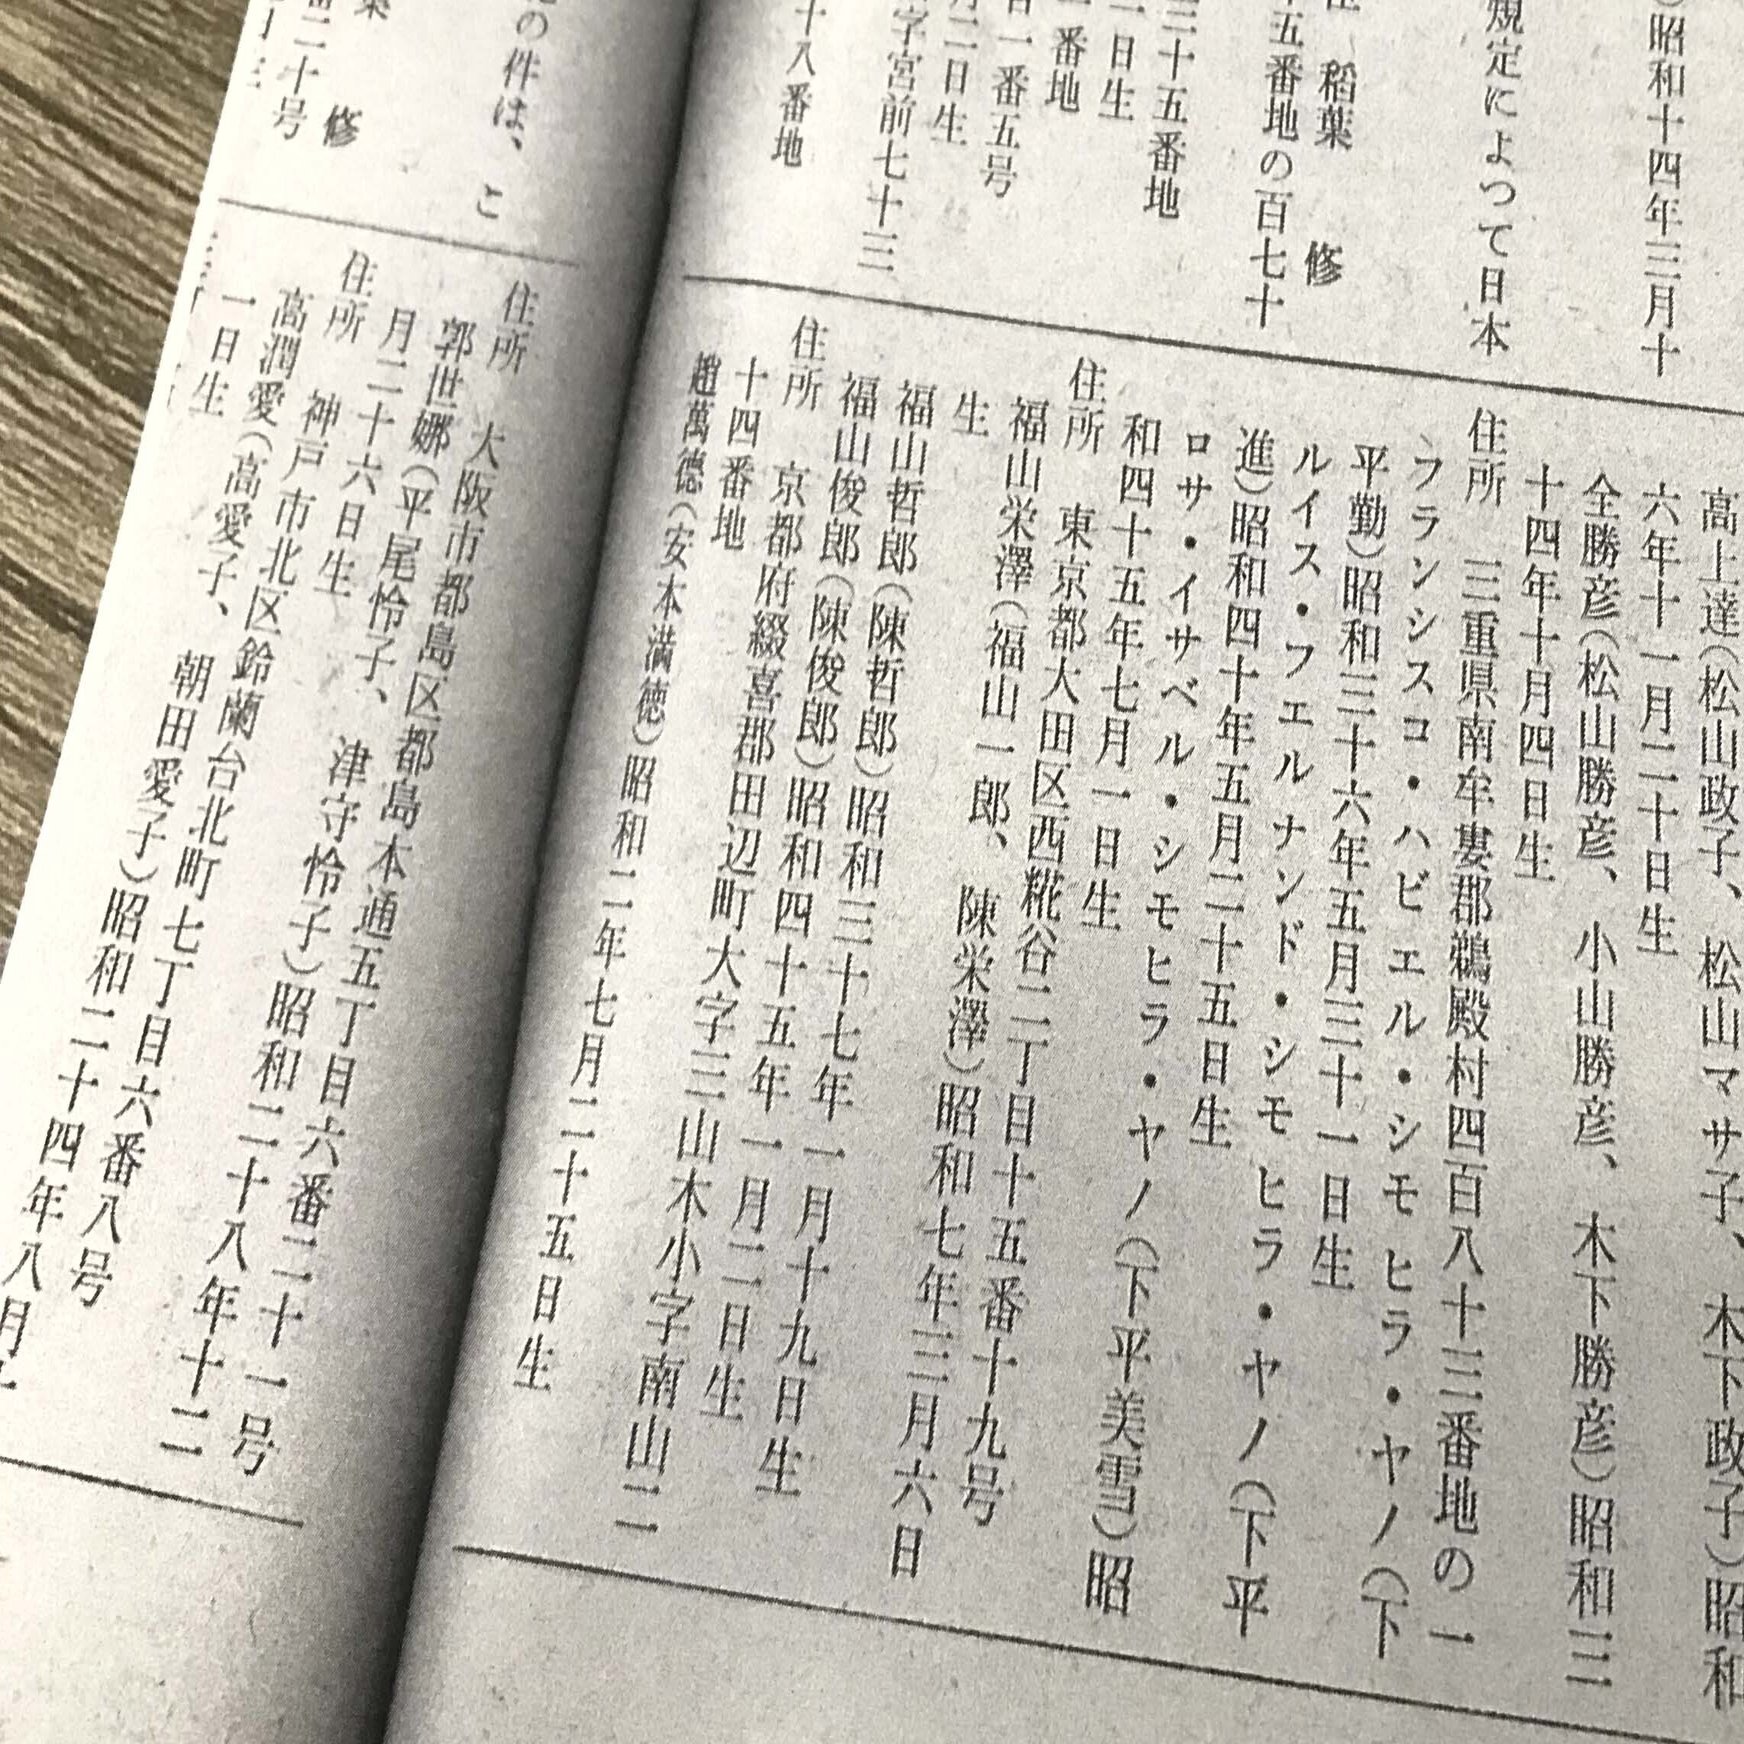 昭和十四年三月十
規定によつて日本
稲葉　修
五番地の百七十
三十五番地
一日生
番地
一番五号
月二日生
字宮前七十三
十八番地
高上達（松山政子、松山マサ子、木下政子）昭和
六年十一月二十日生
全勝彦（松山勝彦、小山勝彦、木下勝彦）昭和三
十四年十月四日生
住所　三重県南牟婁郡鵜殿村四百八十三番地の一
フランシスコ・ハビエル・シモヒラ・ヤノ（下
平勤）昭和三十六年五月三十一日生
ルイス・フエルナンド・シモヒラ・ヤノ（下平
進）昭和四十年五月二十五日生
ロサ・イサベル・シモヒラ・ヤノ（下平美雪）昭
和四十五年七月一日生
住所　東京都大田区西糀谷二丁目十五番十九号
福山栄澤（福山一郎、陳栄澤）昭和七年三月六日
生
福山哲郎（陳哲郎）昭和三十七年一月十九日生
福山俊郎（陳俊郎）昭和四十五年一月二日生
住所　京都府綴喜郡田辺町大字三山木小字南山二
十四番地
趙萬徳（安本満徳）昭和二年七月二十五日生
の件は、こ
修
二十号
住所　大阪市都島区都島本通五丁目六番二十一号
郭世娜（平尾怜子、津守怜子）昭和二十八年十二
月二十六日生
住所　神戸市北区鈴蘭台北町七丁目六番八号
高潤愛（高愛子、朝田愛子）昭和二十四年八月
一日生